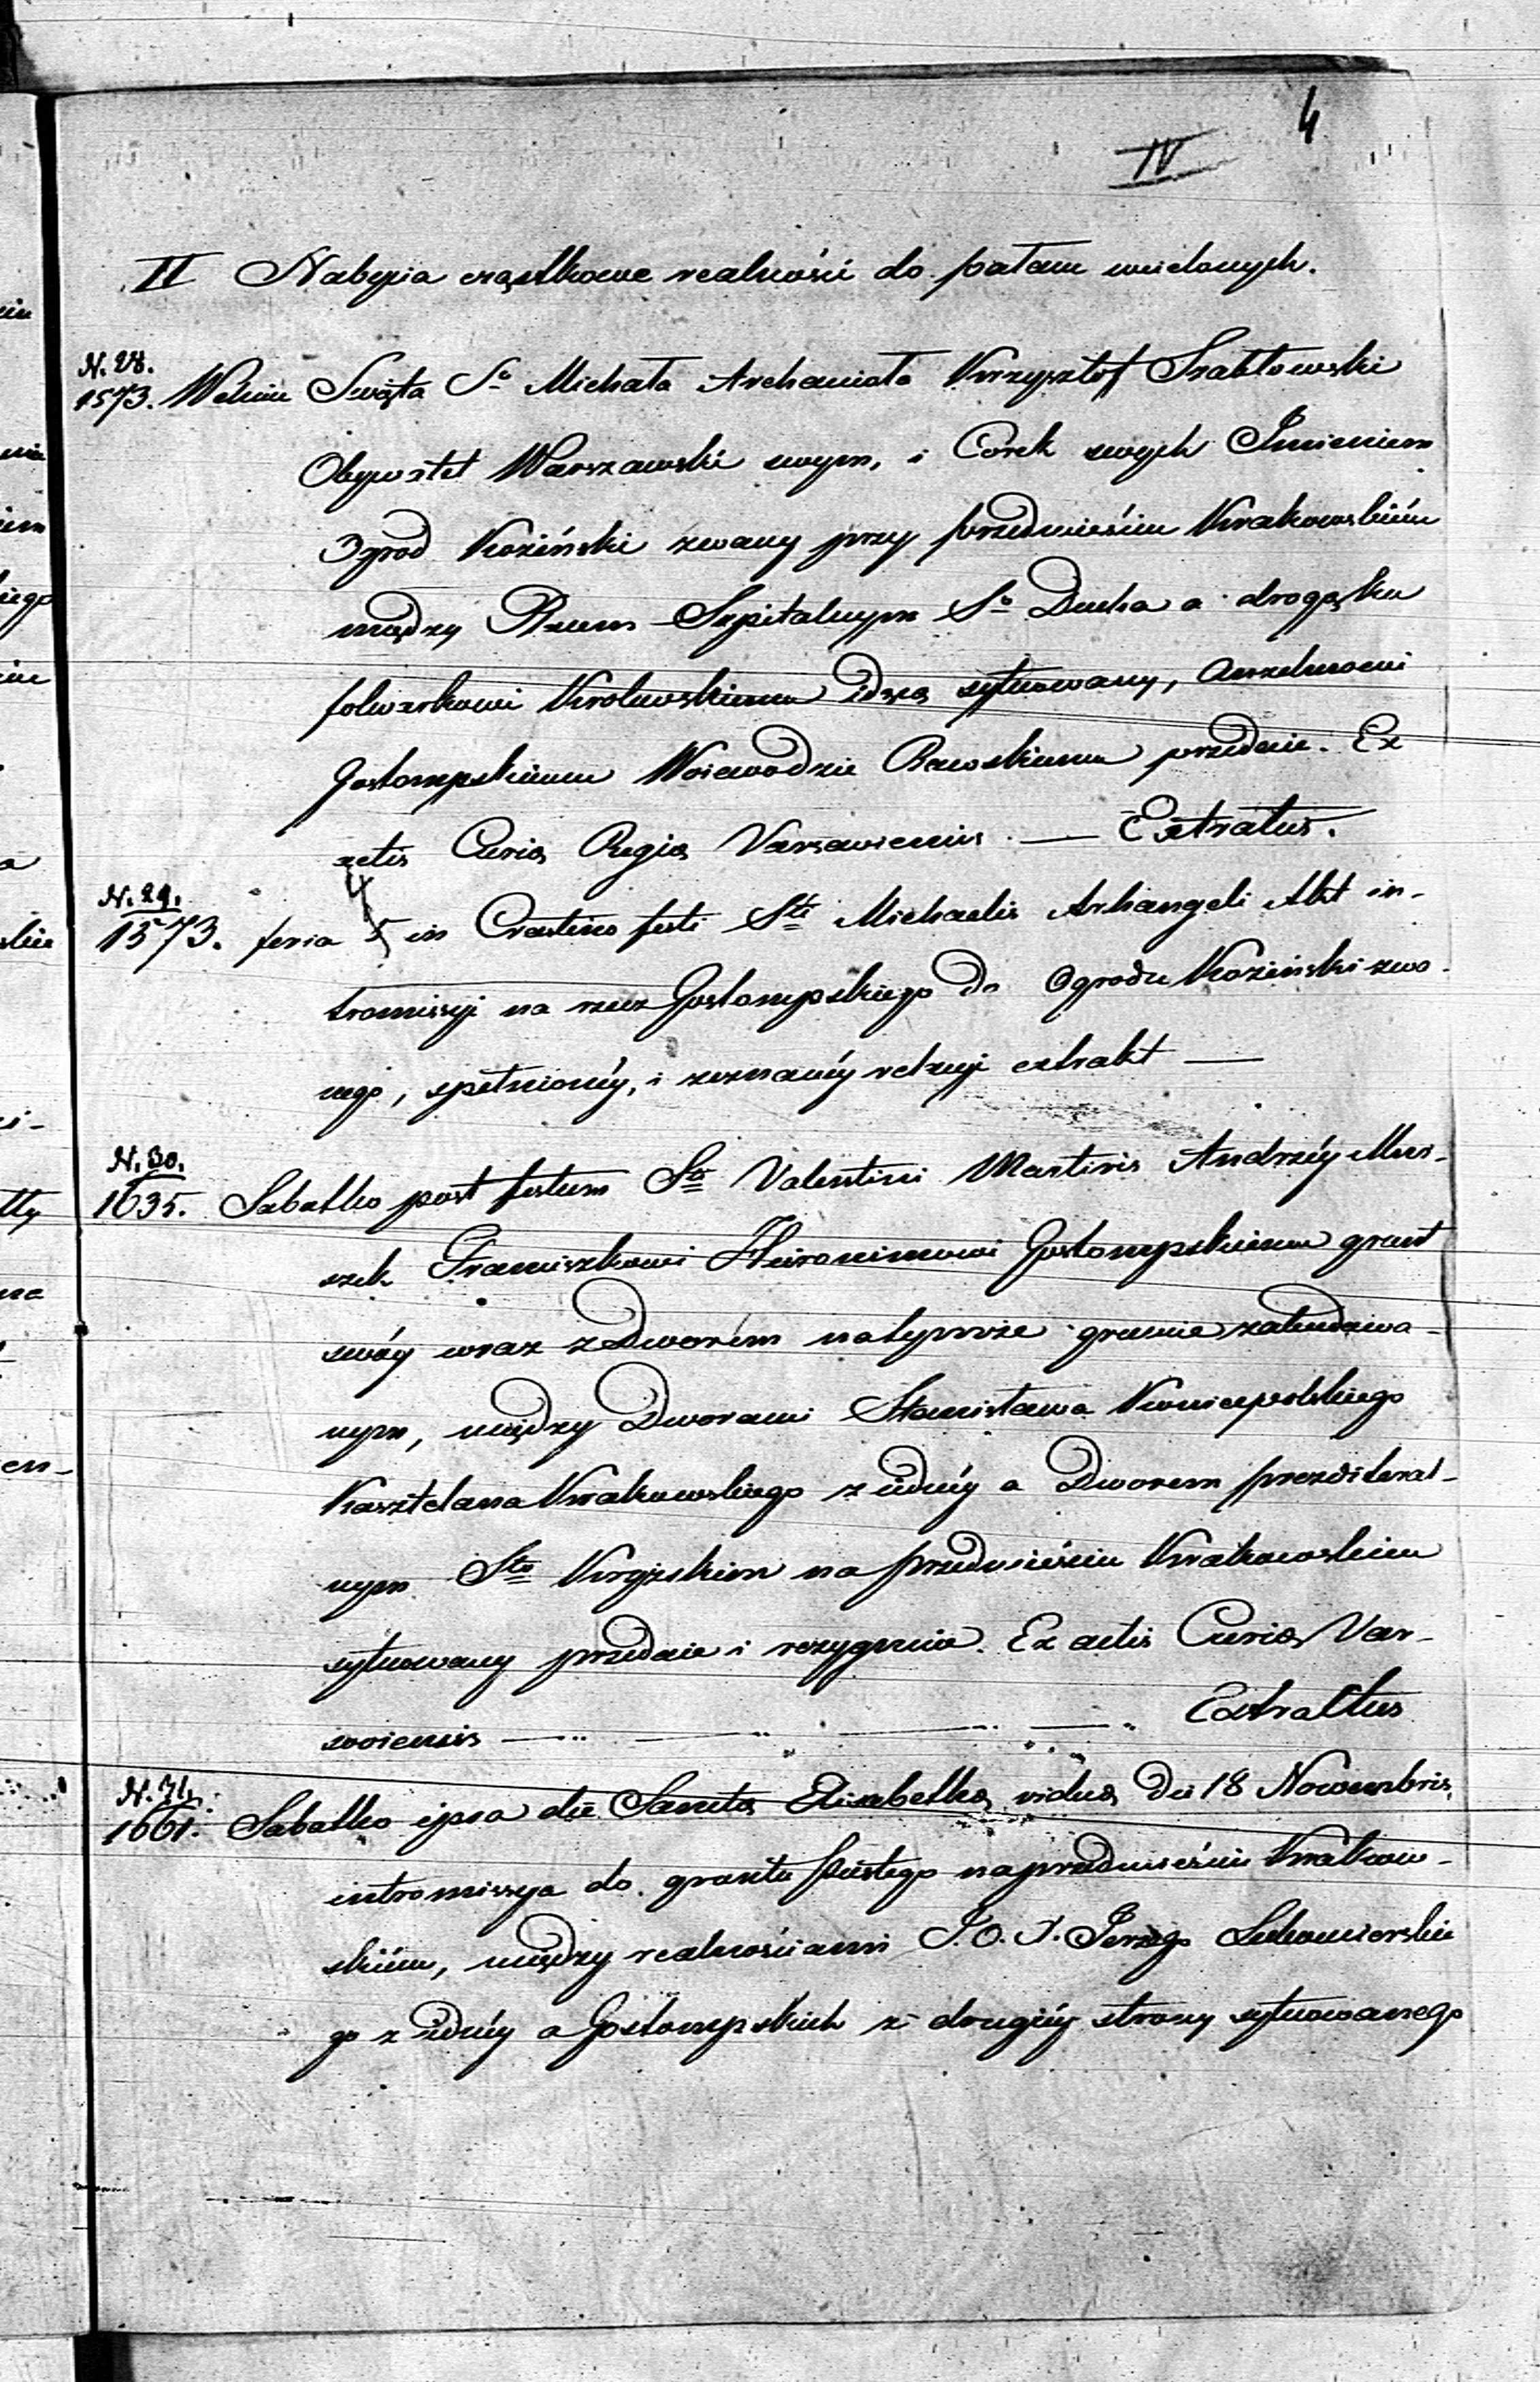 4
IV
II Nabycia cząstkowe realności do pałacu wcielonych.
N. 28.
1573. W dniu Swięta S° Michała Archanioła Krzysztof
Obywatel Warszawski swym, i Corek swych Imieniem
Ogrod Koziński zwany przy przedmieściu Krakowskiém
między Szpitalnym S° Ducha a drogą ku
folwarkowi Krolewskiemu idącą sytuowany, Anzelmowi
Gostompskiemu Woiewodzie Rawskiemu przedaie. Ex
actis Curia Regia Varsaviensis — Extratus.
N. 29.
1573. feria 5 4 in Crastino festi Sti Michaelis Arhangeli Akt in-
tromissyi na rzecz Gostompskiego do Ogrodu Koziński zwa-
nego, spełnionéy, i zeznanéy relacyi extrakt —
N. 30.
1635. Sabatho post festum Sti Valentini Martiris Andrzéy Mni-
szek Franciszkowi Hieronimowi Gostompskiemu grunt
swóy wraz z Dworém na tymże gruncie zabudowa-
nym, między Dworami Stanisława Koniecpolskiego
Kasztelana Krakowskiego z iednéy a Dworem prezviteral-
nym Sto Krzyskim na przedmieściu Krakowskiem
sytuowany przedaie i rezygnuie. Ex actis Curia Var-
soviensis — — — — Extraktus
N. 31.
1661. Sabatho ipsa die Sancta Elisabetha vidua die 18 Novembris,
intromissya do gruntu pustego na przedmieściu Krakow-
skiém, między realnościami J. O. X. Jerzego Lubomirskie
go z iednéy a Gostompskich z drugiéy strony sytuowanego